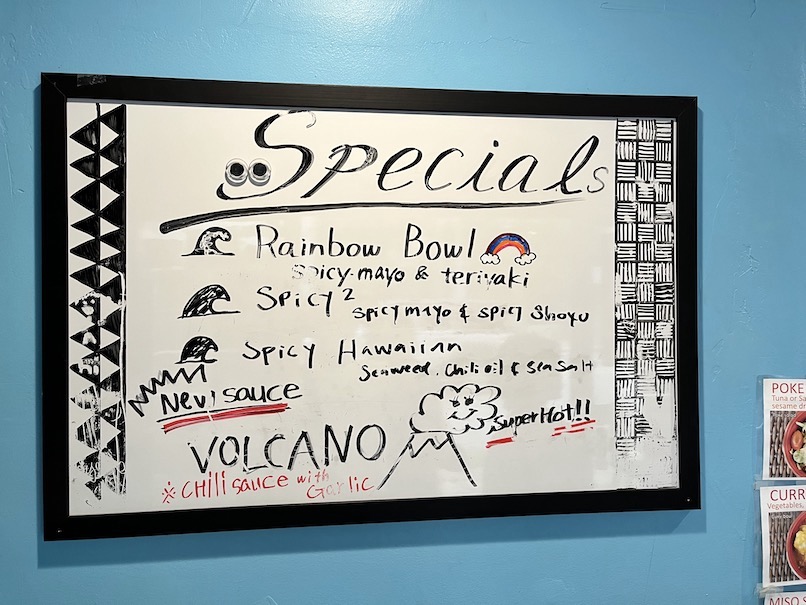 Specials
Rainbow Bowl
Spicy mayo & teriyaki
Spicy²
Spicy mayo & spicy Shoyu
Spicy Hawaiian
Seaweed, Chili oil & Sea Salt
New! sauce
VOLCANO
Super Hot!!
※ CHili sauce with
Garlic
POKE
Tuna or Sa
sesame dr
CURR
Vegetables,
MISO S